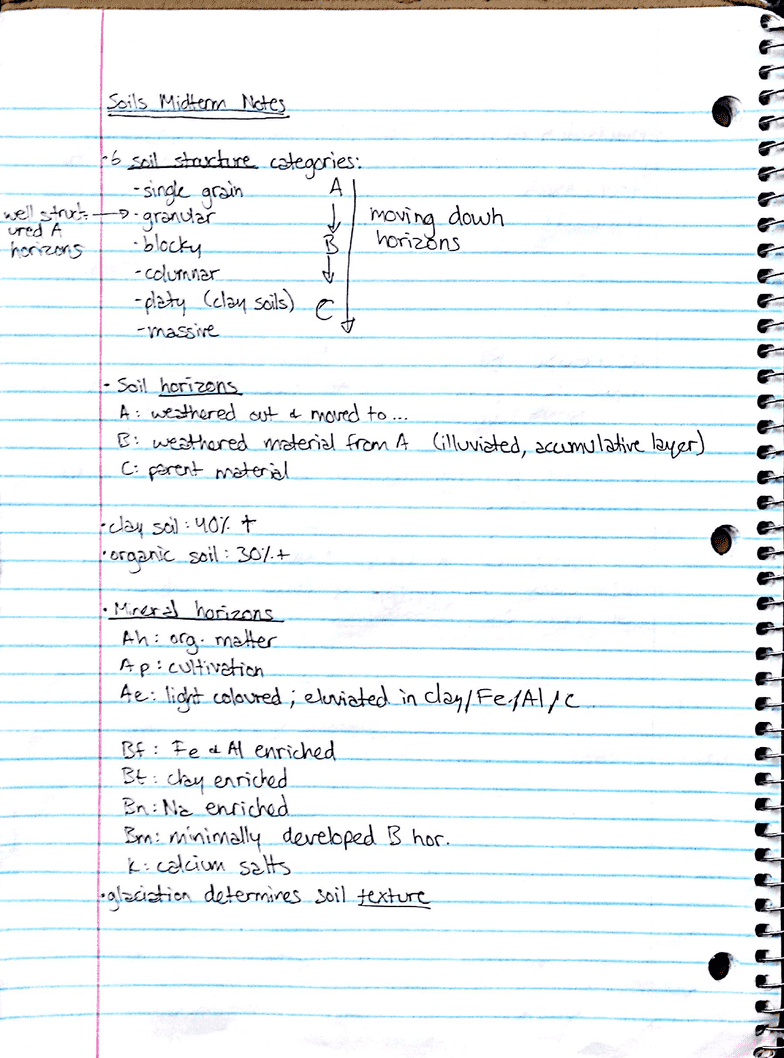 Soils Midterm Notes
·6 soil structure categories:
-single grain
-granular
-blocky
-columnar
-platy (clay soils)
-massive
well struct-
ured A
horizons
A
B
C
moving down
horizons
- Soil horizons
A: weathered out & moved to...
B: weathered material from A (illuviated, accumulative layer)
C: parent material
·clay soil: 40% +
·organic soil: 30% +
·Mineral horizons
Ah: org. matter
Ap: cultivation
Ae: light coloured; eluviated in clay/Fe/Al/C
Bf: Fe & Al enriched
Bt: clay enriched
Bn: Na enriched
Bm: minimally developed B hor.
k: calcium salts
·glaciation determines soil texture